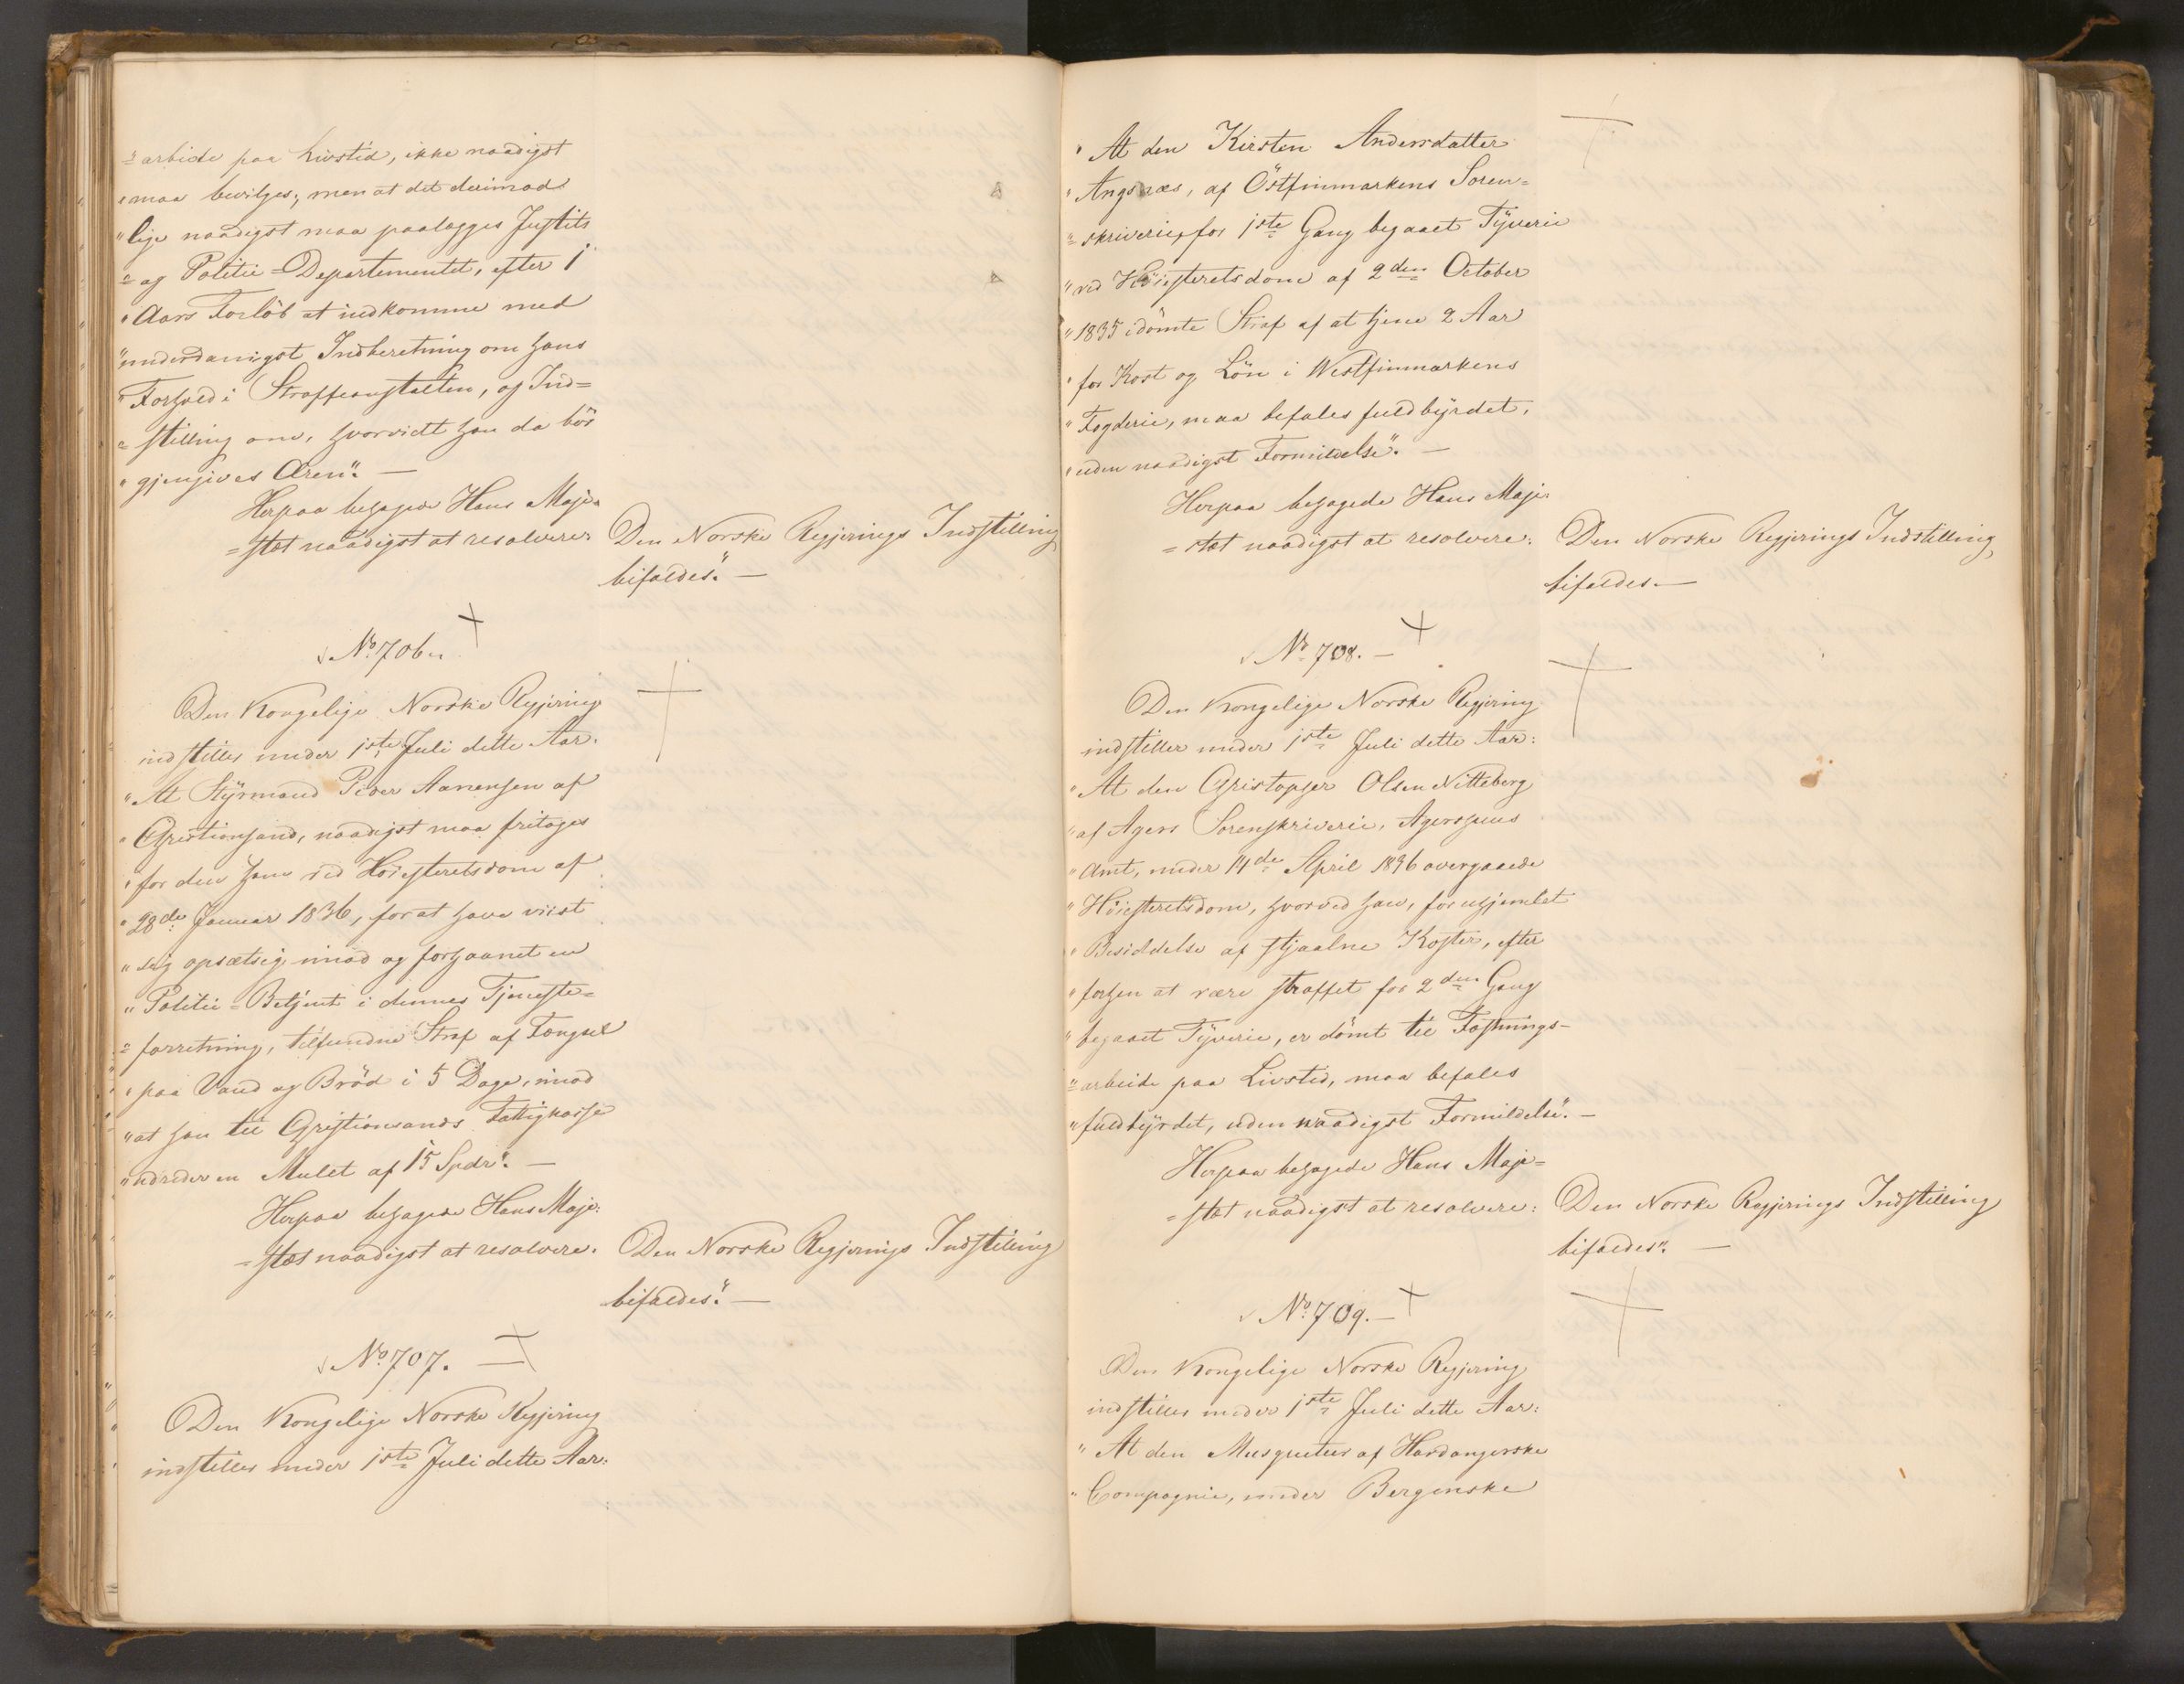 =arbeide paa Livstid, ikke naadigst
"maa bevilges, men at det derimod
"lige naadigst maa paalægges Justits
=og Politie=Departementet, efter 1
"Aars Forløb at indkomme med
"underdanigst Indberetning om hans
"Forhold i Straffeanstalten, og Ind=
=stilling om, hvorvidt han da bör
"gjengives Æren". —
Herpaa behagede Hans Maje=
=stæt naadigst at resolvere:
Den Norske Regjerings Indstilling
bifaldes". —
No 706.
Den Kongelige Norske Regjering
indstiller under 1ste Juli dette Aar:
"At Styrmand Peder Aanensen af
"Christiansand, naadigst maa fritages
"for den ham ved Höiesteretsdom af
"28de Januar 1836, for at have viist
"sig opsætsig imod og forhaanet en
"Politie=Betjent i dennes Tjeneste=
=forretning, tilfundne Straf af Fængsel
"paa Vand og Bröd i 5 Dage, imod
"at han til Christiansands Fattigkasse
"udreder en Mulct af 15 Spdr". —
Herpaa behagede Hans Maje=
=stæt naadigst at resolvere:
Den Norske Regjerings Indstilling
bifaldes". —
No 707. —
Den Kongelige Norske Regjering
indstiller under 1ste Juli dette Aar:
"At den Kirsten Andersdatter
"Angsnæs, af Östfinmarkens Soren=
=skriverie, for 1ste Gang begaaet Tyverie
"ved Höiesteretsdom af 2den October
"1835 idömte Straf af at tjene 2 Aar
"for Kost og Lön i Westfinmarkens
"Fogderie, maa befales fuldbyrdet,
"uden naadigst Formildelse". —
Herpaa behagede Hans Maje=
=stæt naadigst at resolvere:
Den Norske Regjerings Indstilling
bifaldes. —
No 708. —
Den Kongelige Norske Regjering
indstiller under 1ste Juli dette Aar:
"At den Christopher Olsen Nitteberg
"af Agers Sorenskriverie, Agershuus
"Amt, under 14de April 1836 overgaaede
"Höiesteretsdom, hvorved han, for uhjemlet
"Besiddelse af stjaalne Koster, efter
"forhen at være straffet for 2den Gang
"begaaet Tyverie, er dömt til Fæstnings=
=arbeide paa Livstid, maa befales
"fuldbyrdet, uden naadigst Formildelse". —
Herpaa behagede Hans Maje=
=stæt naadigst at resolvere:
Den Norske Regjerings Indstilling
bifaldes". —
No 709. —
Den Kongelige Norske Regjering
indstiller under 1ste Juli dette Aar:
"At den Musqueteer af Hardangerske
"Compagnie, under Bergenske